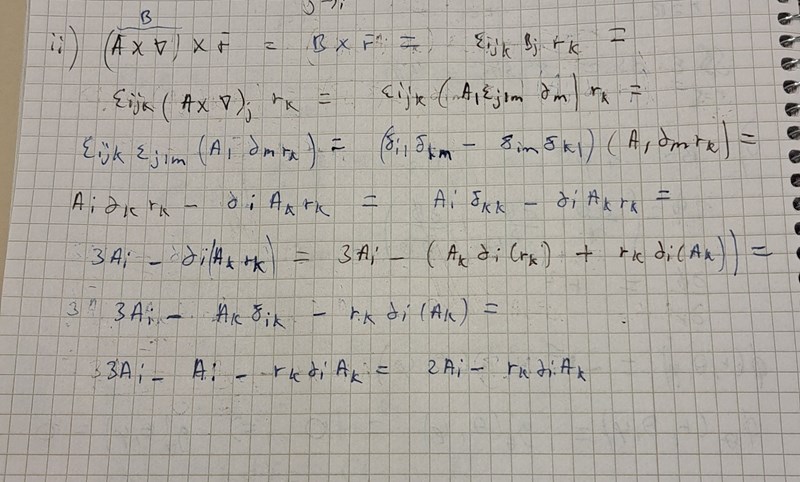 B
ii) (A x ∇) x r̄ = B x r̄ = εijk Bj rk =
εijk (A x ∇)j rk = εijk (Al εjlm ∂m) rk =
εijk εjlm (Al ∂m rk) = (δil δkm - δim δkl) (Al ∂m rk) =
Ai ∂k rk - ∂i Ak rk = Ai δkk - ∂i Ak rk =
3Ai - ∂i(Ak rk) = 3Ai - (Ak ∂i (rk) + rk ∂i (Ak)) =
3Ai - Ak δik - rk ∂i (Ak) =
3Ai - Ai - rk ∂i Ak = 2Ai - rk ∂i Ak